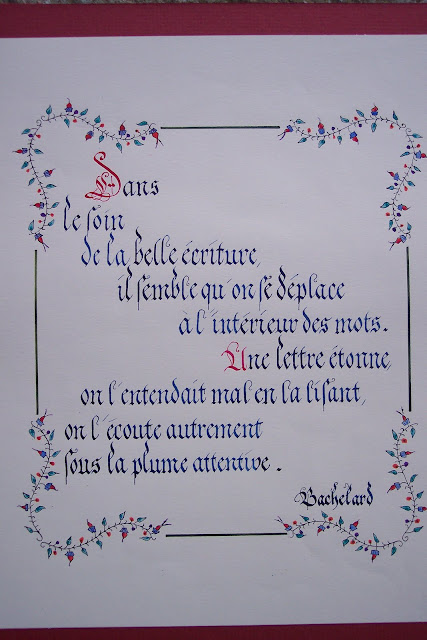 Dans
le soin
de la belle écriture,
il semble qu'on se déplace
à l'intérieur des mots.
Une lettre étonne,
on l'entendait mal en la lisant,
on l'écoute autrement
sous la plume attentive.
Bachelard